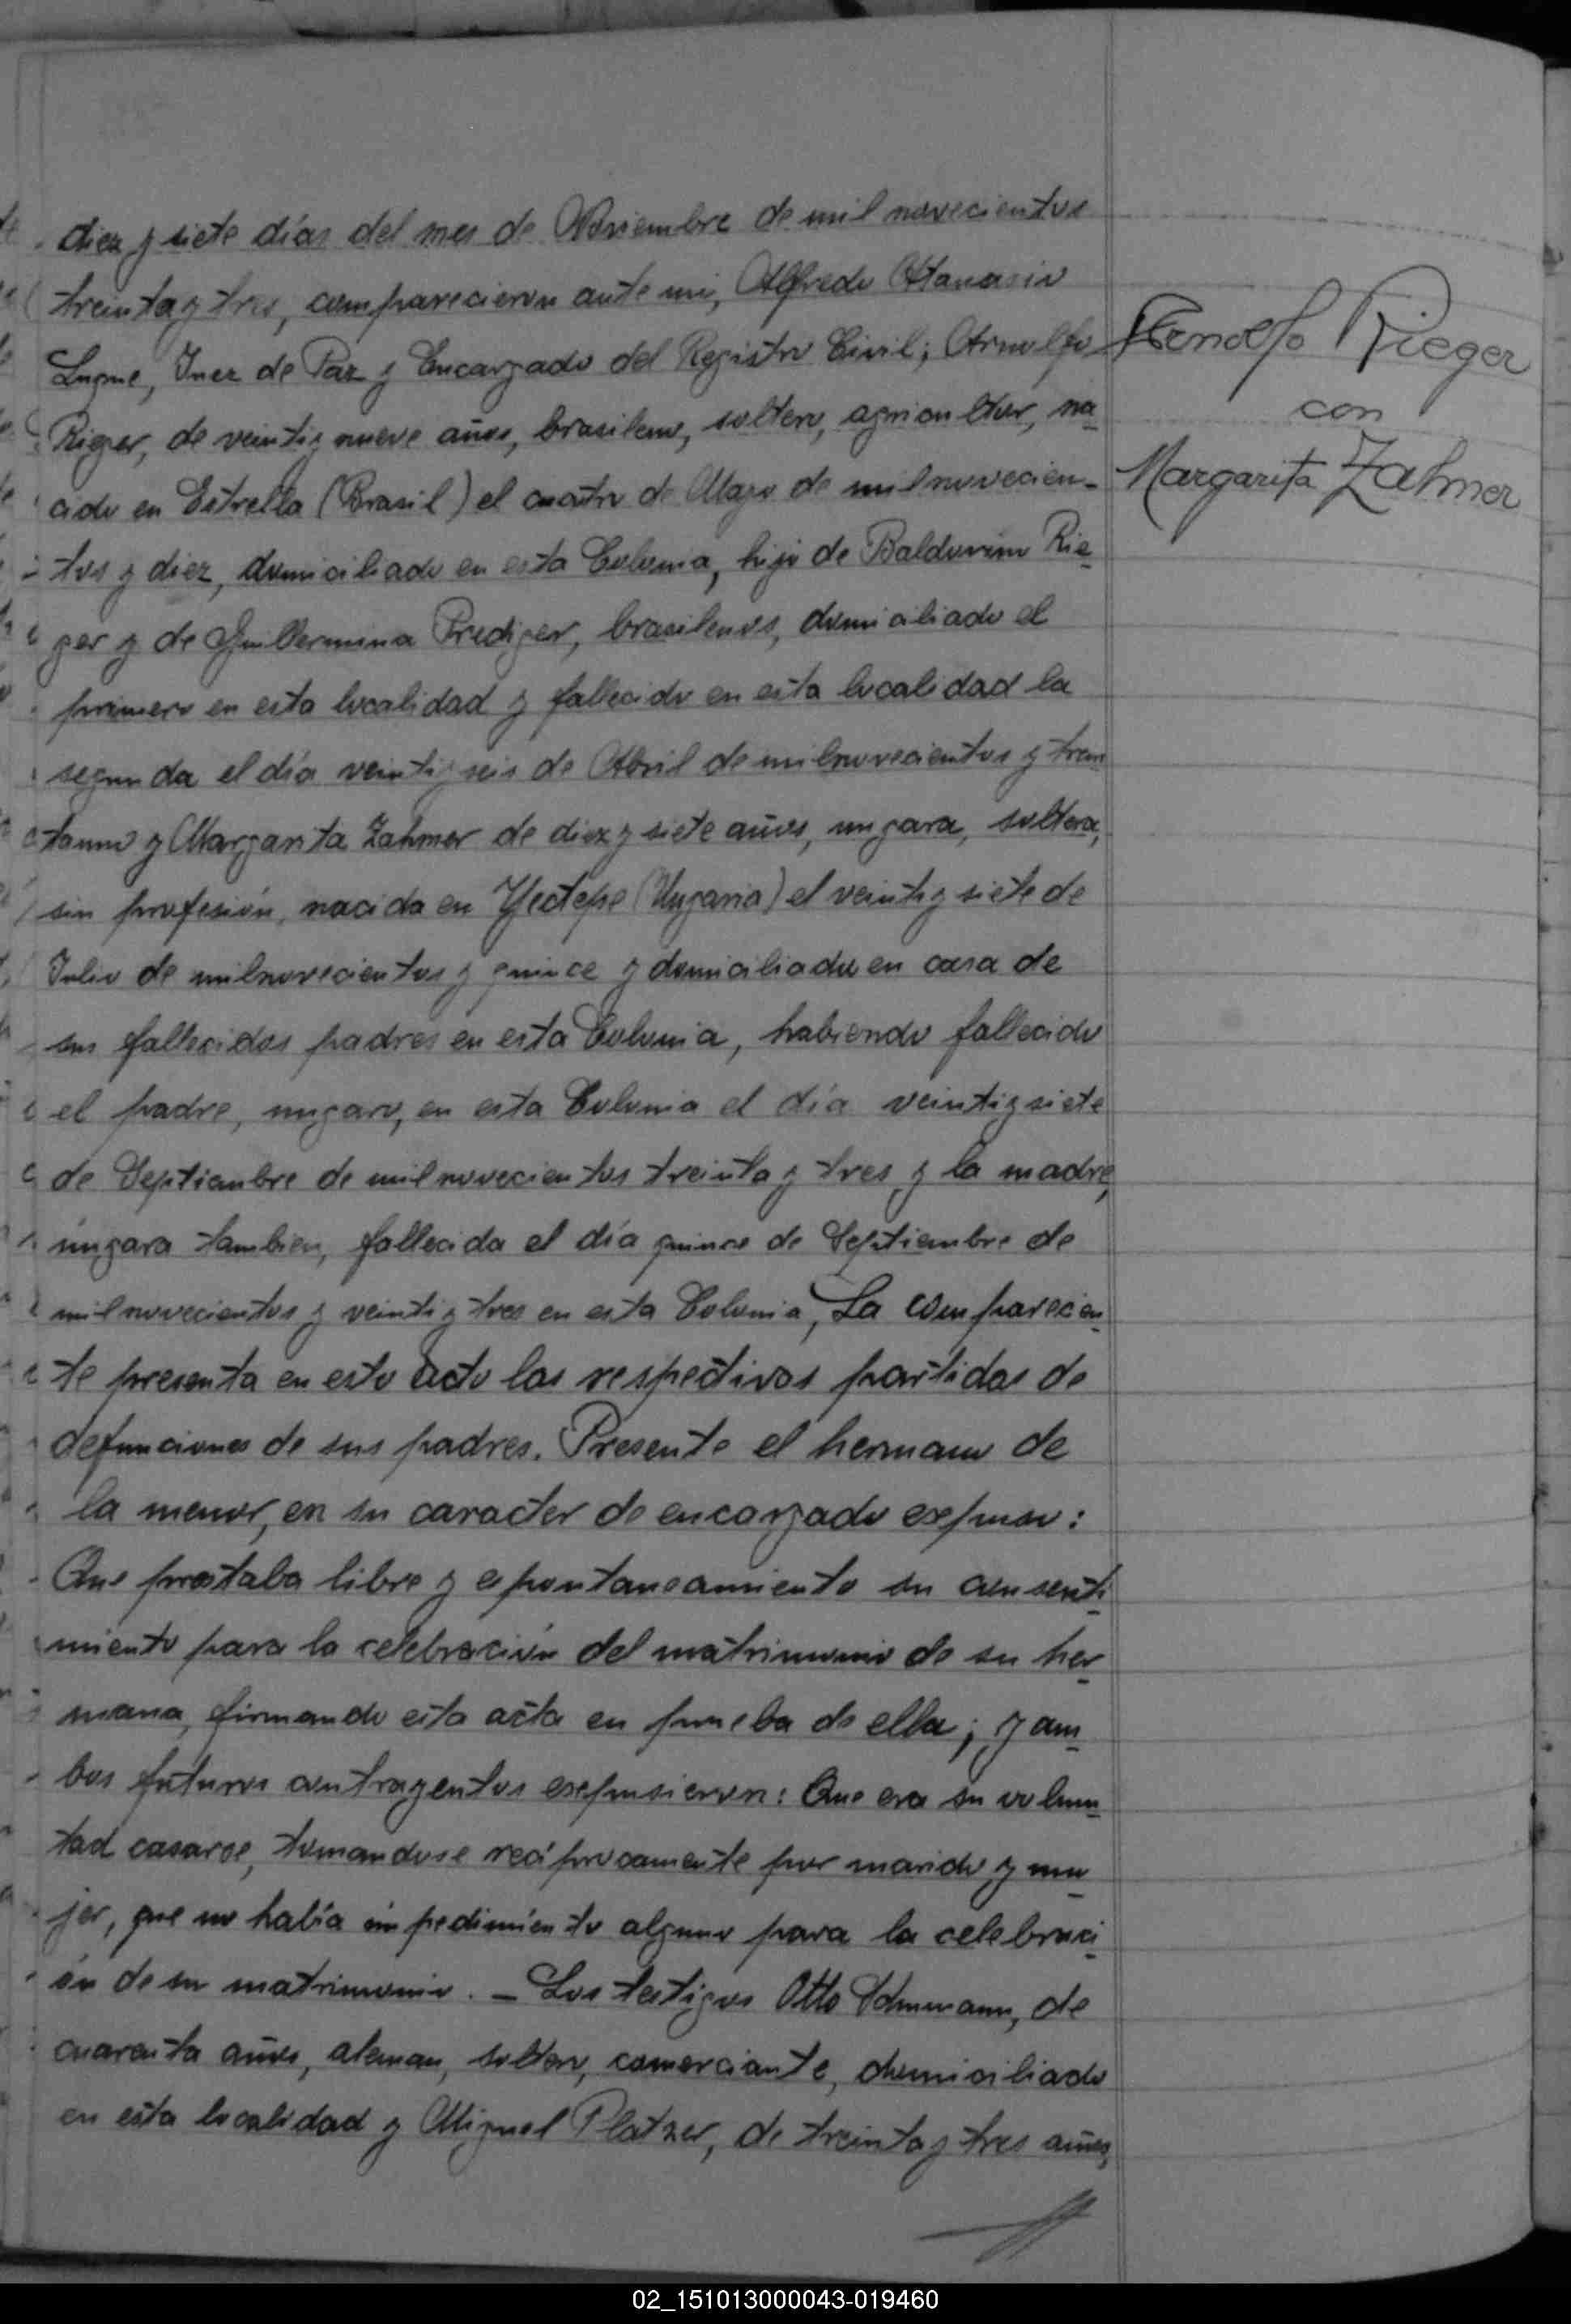 diez y siete días del mes de Noviembre de mil novecientos
treinta y tres, comparecieron ante mi, Alfredo Atanasio
Luque, Juez de Paz y Encargado del Registro Civil; Arnolfo
Rieger, de veintiy nueve años, brasileno, soltero, agricultor, na
cido en Estrella (Brasil) el cuatro de Mayo de milnovecien-
tos y diez, domiciliado en esta Colonia, hijo de Balduvino Rie
ger y de Guillermina Prediger, brasilenos, domiciliado el
primero en esta localidad y fallecido en esta localidad la
segunda el día veintiy seis de Abril de milnovecientos y trein
taiuno y Margarita Zahmer de diez y siete años, ungara, soltera,
sin profesión, nacida en (Ungaria) el veintiy siete de
Julio de milnovecientos y quince y domiciliada en casa de
sus fallecidos padres en esta Colonia, habiendo fallecido
el padre, ungaro, en esta Colonia el día veintiy siete
de Septiembre de milnovecientos treinta y tres, y la madre,
úngara tambien, fallecida el día quince de Septiembre de
milnovecientos y veintiy tres en esta Colonia, La comparecien
te presenta en esto acto las respectivas partidas de
defunciones de sus padres. Presente el hermano de
la menor, en su caracter de encargado expuso:
Que prestaba libre y espontaneamiento su consenti
miento para la celebración del matrimonio de su her
mana, firmando esta acta en prueba de ella; y am
bos futuros contrayentos expusieron: Que era su volun
tad casarse, tomandose recíprocamente por marido y mu
jer, que no había impedimiento alguno para la celebraci
ón de su matrimonio. - Los testigos Otto Schumann, de
cuarenta años, aleman, soltero, comerciante, domiciliado
en esta localidad y Miguel Platzer, de treinta y tres años,
Arnolfo Rieger
con
Margarita Zahmer
02_151013000043-019460